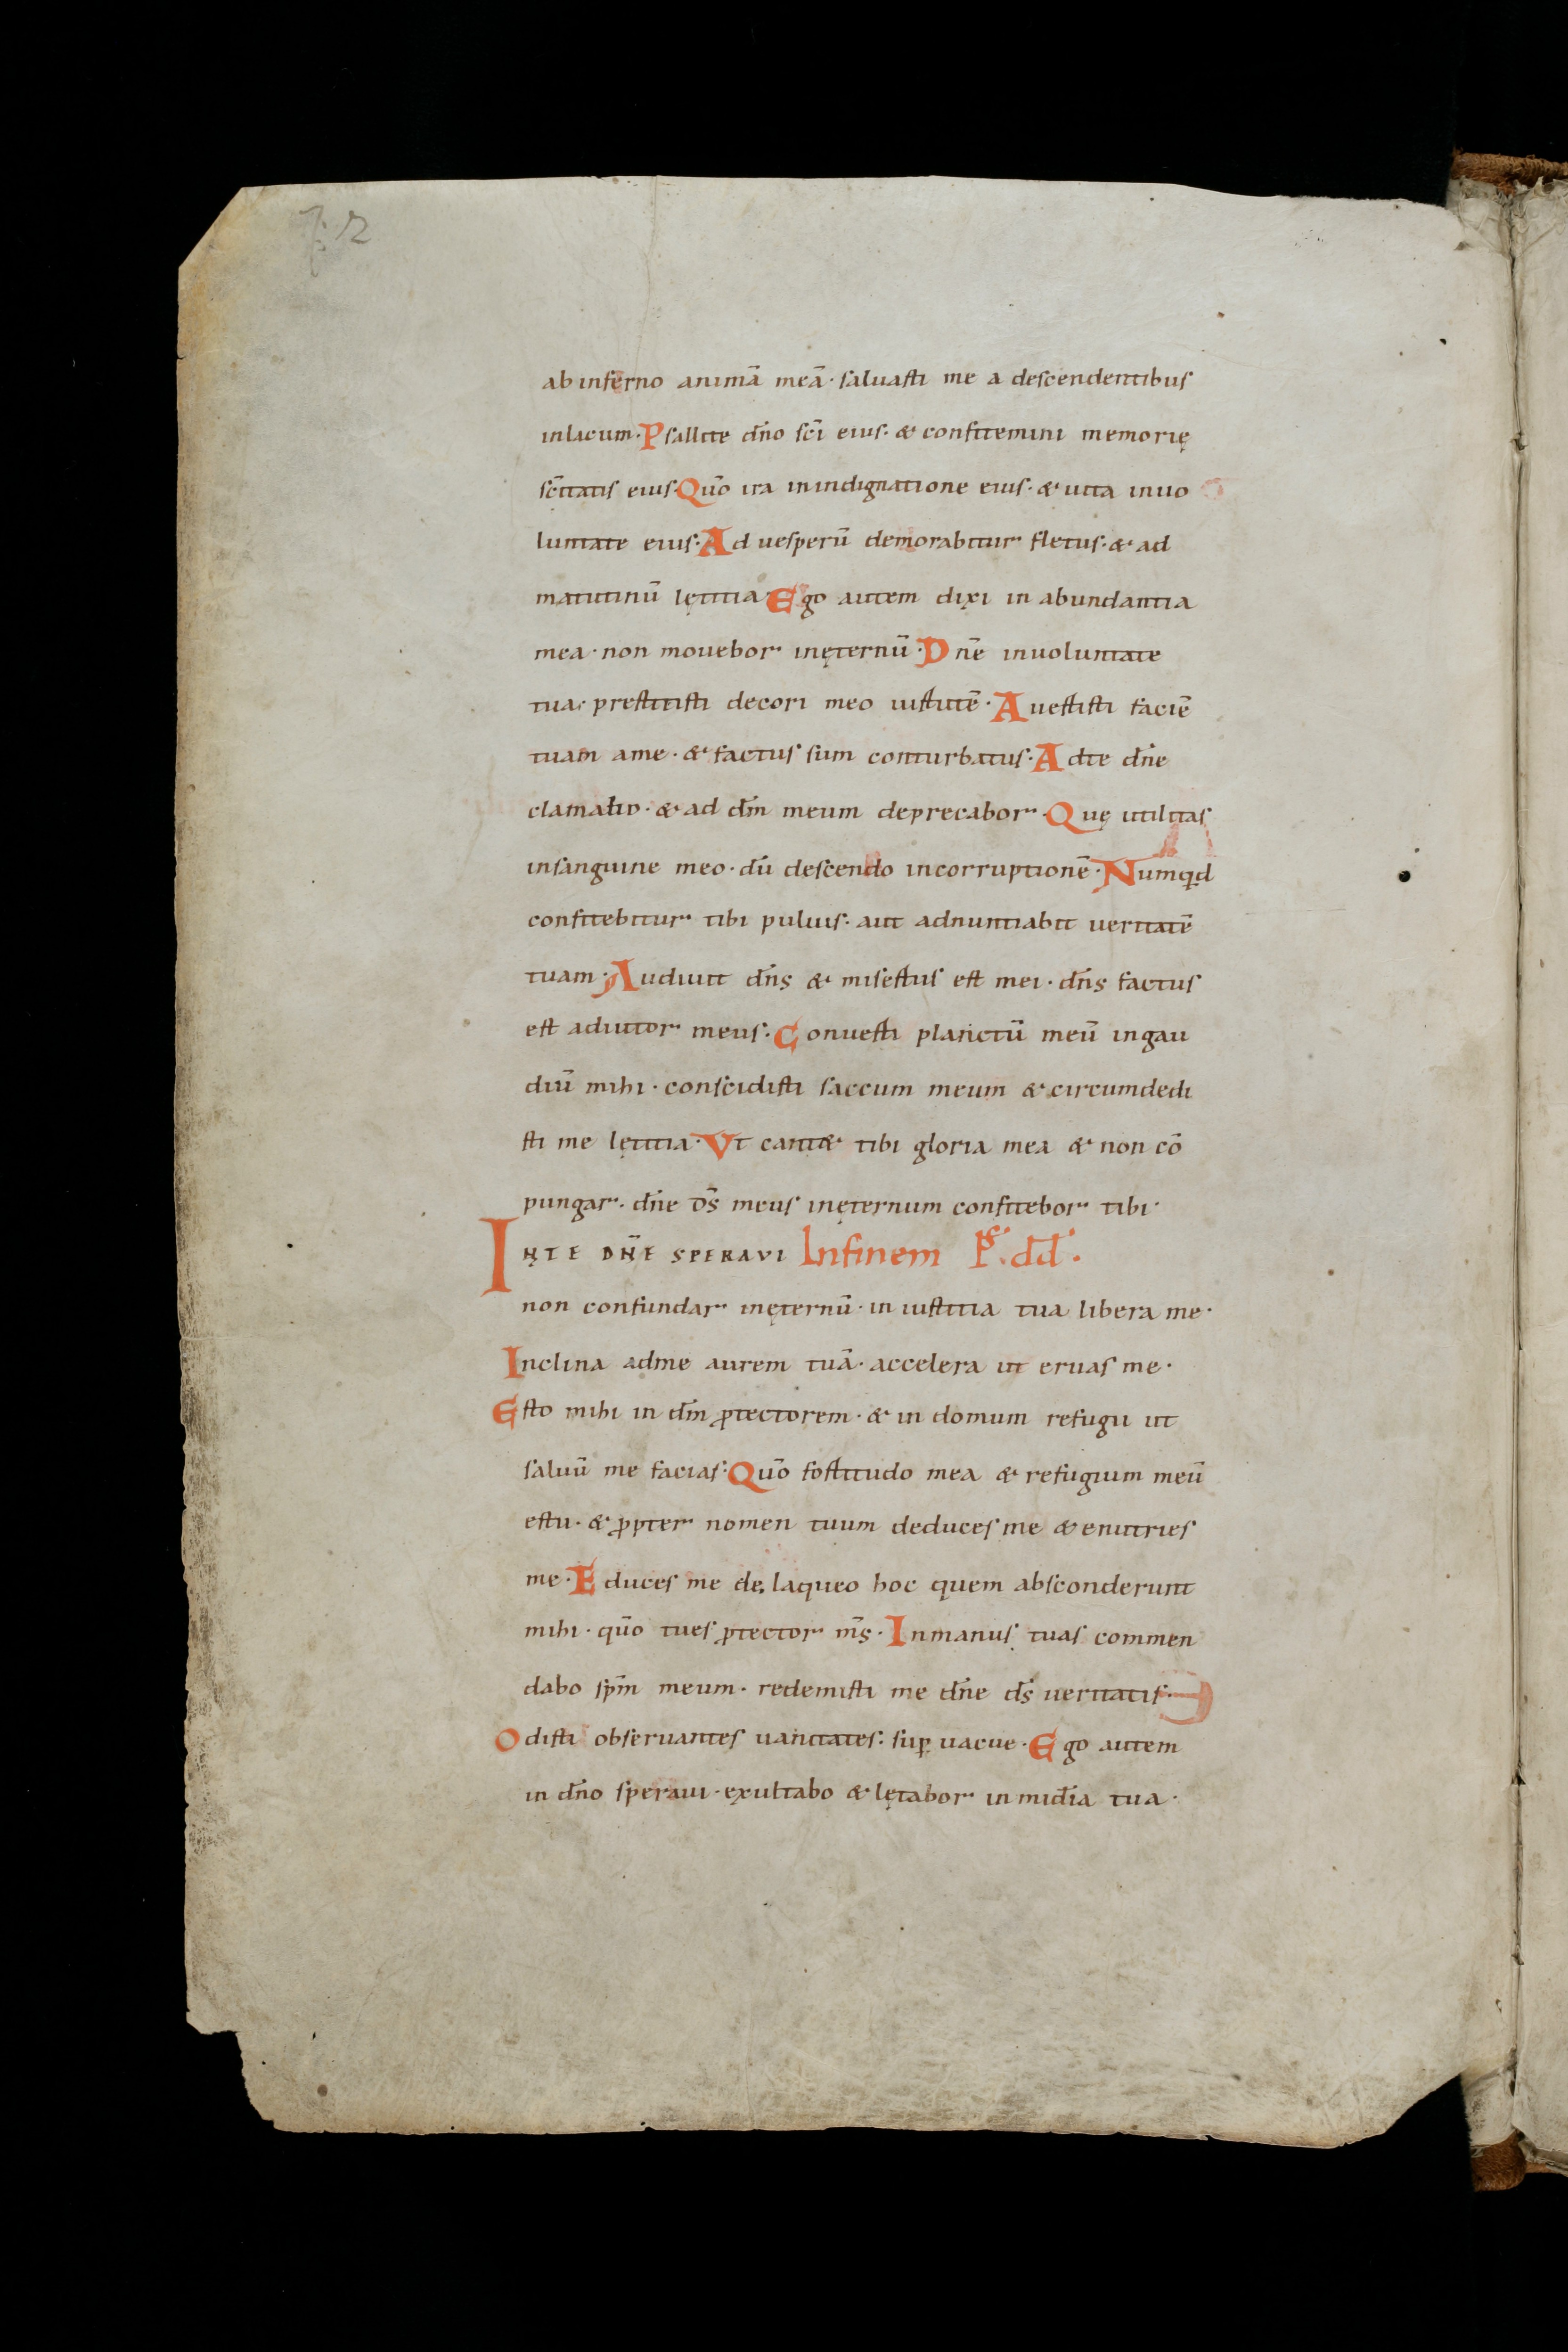 ab inferno animā meā · saluasti me a descendentibus
inlacum · Psallite dn̄o sc̄i eius · & confitemini memorię
sc̄itatis eius · Quō ira inindignatione eius · & uita inuo
luntate eius · Ad uesperū demorabitur fletus · & ad
matutinū lętitia · Ego autem dixi in abundantia
mea · non mouebor inęternū · Dnē inuoluntate
tua · prestitisti decori meo uirtutē · Auertisti faciē
tuam ame · & factus sum conturbatus · Adte dn̄e
clamabo · & ad dm̄ meum deprecabor · Quę utilitas
insanguine meo · dū descendo incorruptionē · Numqd
confitebitur tibi puluis · aut adnuntiabit ueritatē
tuam · Audiuit dn̄s & misertus est mei · dn̄s factus
est adiutor meus · Conuerti planctū meū ingau
diū mihi · conscidisti saccum meum & circumdedi
sti me lętitia · Vt cant& tibi gloria mea & non cō
pungar · dn̄e ds̄ meus inęternum confitebor tibi ·
INTE DN̄E SPERAVI Infinem Ps̄ · dd̄ ·
non confundar inęternū · in iustitia tua libera me ·
Inclina adme aurem tuā · accelera ut eruas me ·
Esto mihi in dm̄ ꝓtectorem · & in domum refugii ut
saluū me facias · Quō fortitudo mea & refugium meū
estu · & ꝓpter nomen tuum deduces me & enutries
me · Educes me de laqueo hoc quem absconderunt
mihi · quō tues ꝓtector ms̄ · Inmanus tuas commen
dabo spm̄ meum · redemisti me dn̄e ds̄ ueritatis ·
Odisti obseruantes uanitates : suꝑ uacue · Ego autem
in dn̄o speraui · exultabo & lętabor in mid̄ia tua ·